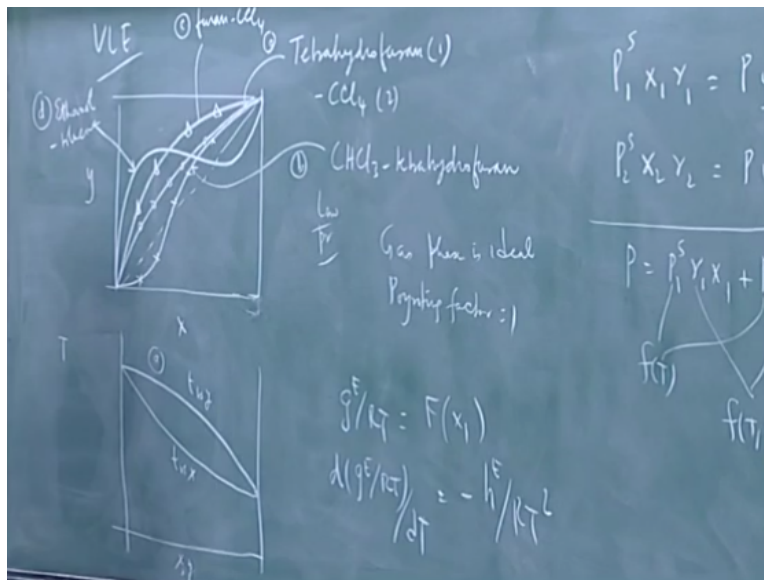 VLE
ⓒ furan-CCl4
ⓐ Tetrahydrofuran (1)
- CCl4 (2)
ⓓ Ethanol
y
ⓑ CHCl3 - tetrahydrofuran
Low
Pr
Gas phase is ideal
Poynting factor = 1
x
P₁ˢ x₁ γ₁ = P
P₂ˢ x₂ γ₂ = P
P = P₁ˢ γ₁ x₁ +
f(T)
f(T,
T
ⓐ
t vs y
t vs x
x,y
gᴱ/RT = F(x₁)
d(gᴱ/RT)/dT = - hᴱ/RT²